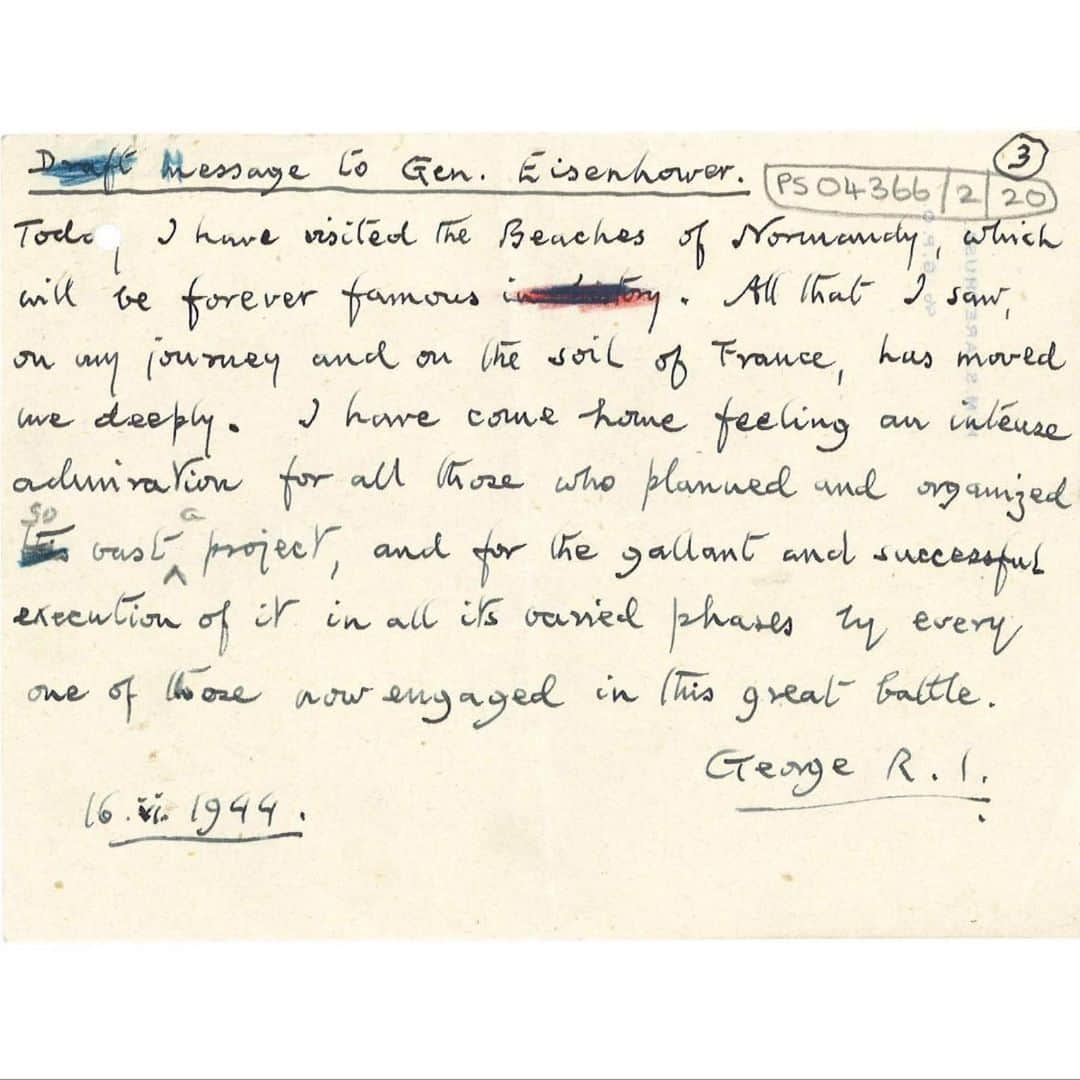 Draft Message to Gen. Eisenhower.
3
PS 04366/2/20
Today I have visited the Beaches of Normandy, which
will be forever famous in history. All that I saw,
on my journey and on the soil of France, has moved
me deeply. I have come home feeling an intense
admiration for all those who planned and organized
so a
this vast project, and for the gallant and successful
execution of it in all its varied phases by every
one of those now engaged in this great battle.
George R.I.
16.vi.1944.